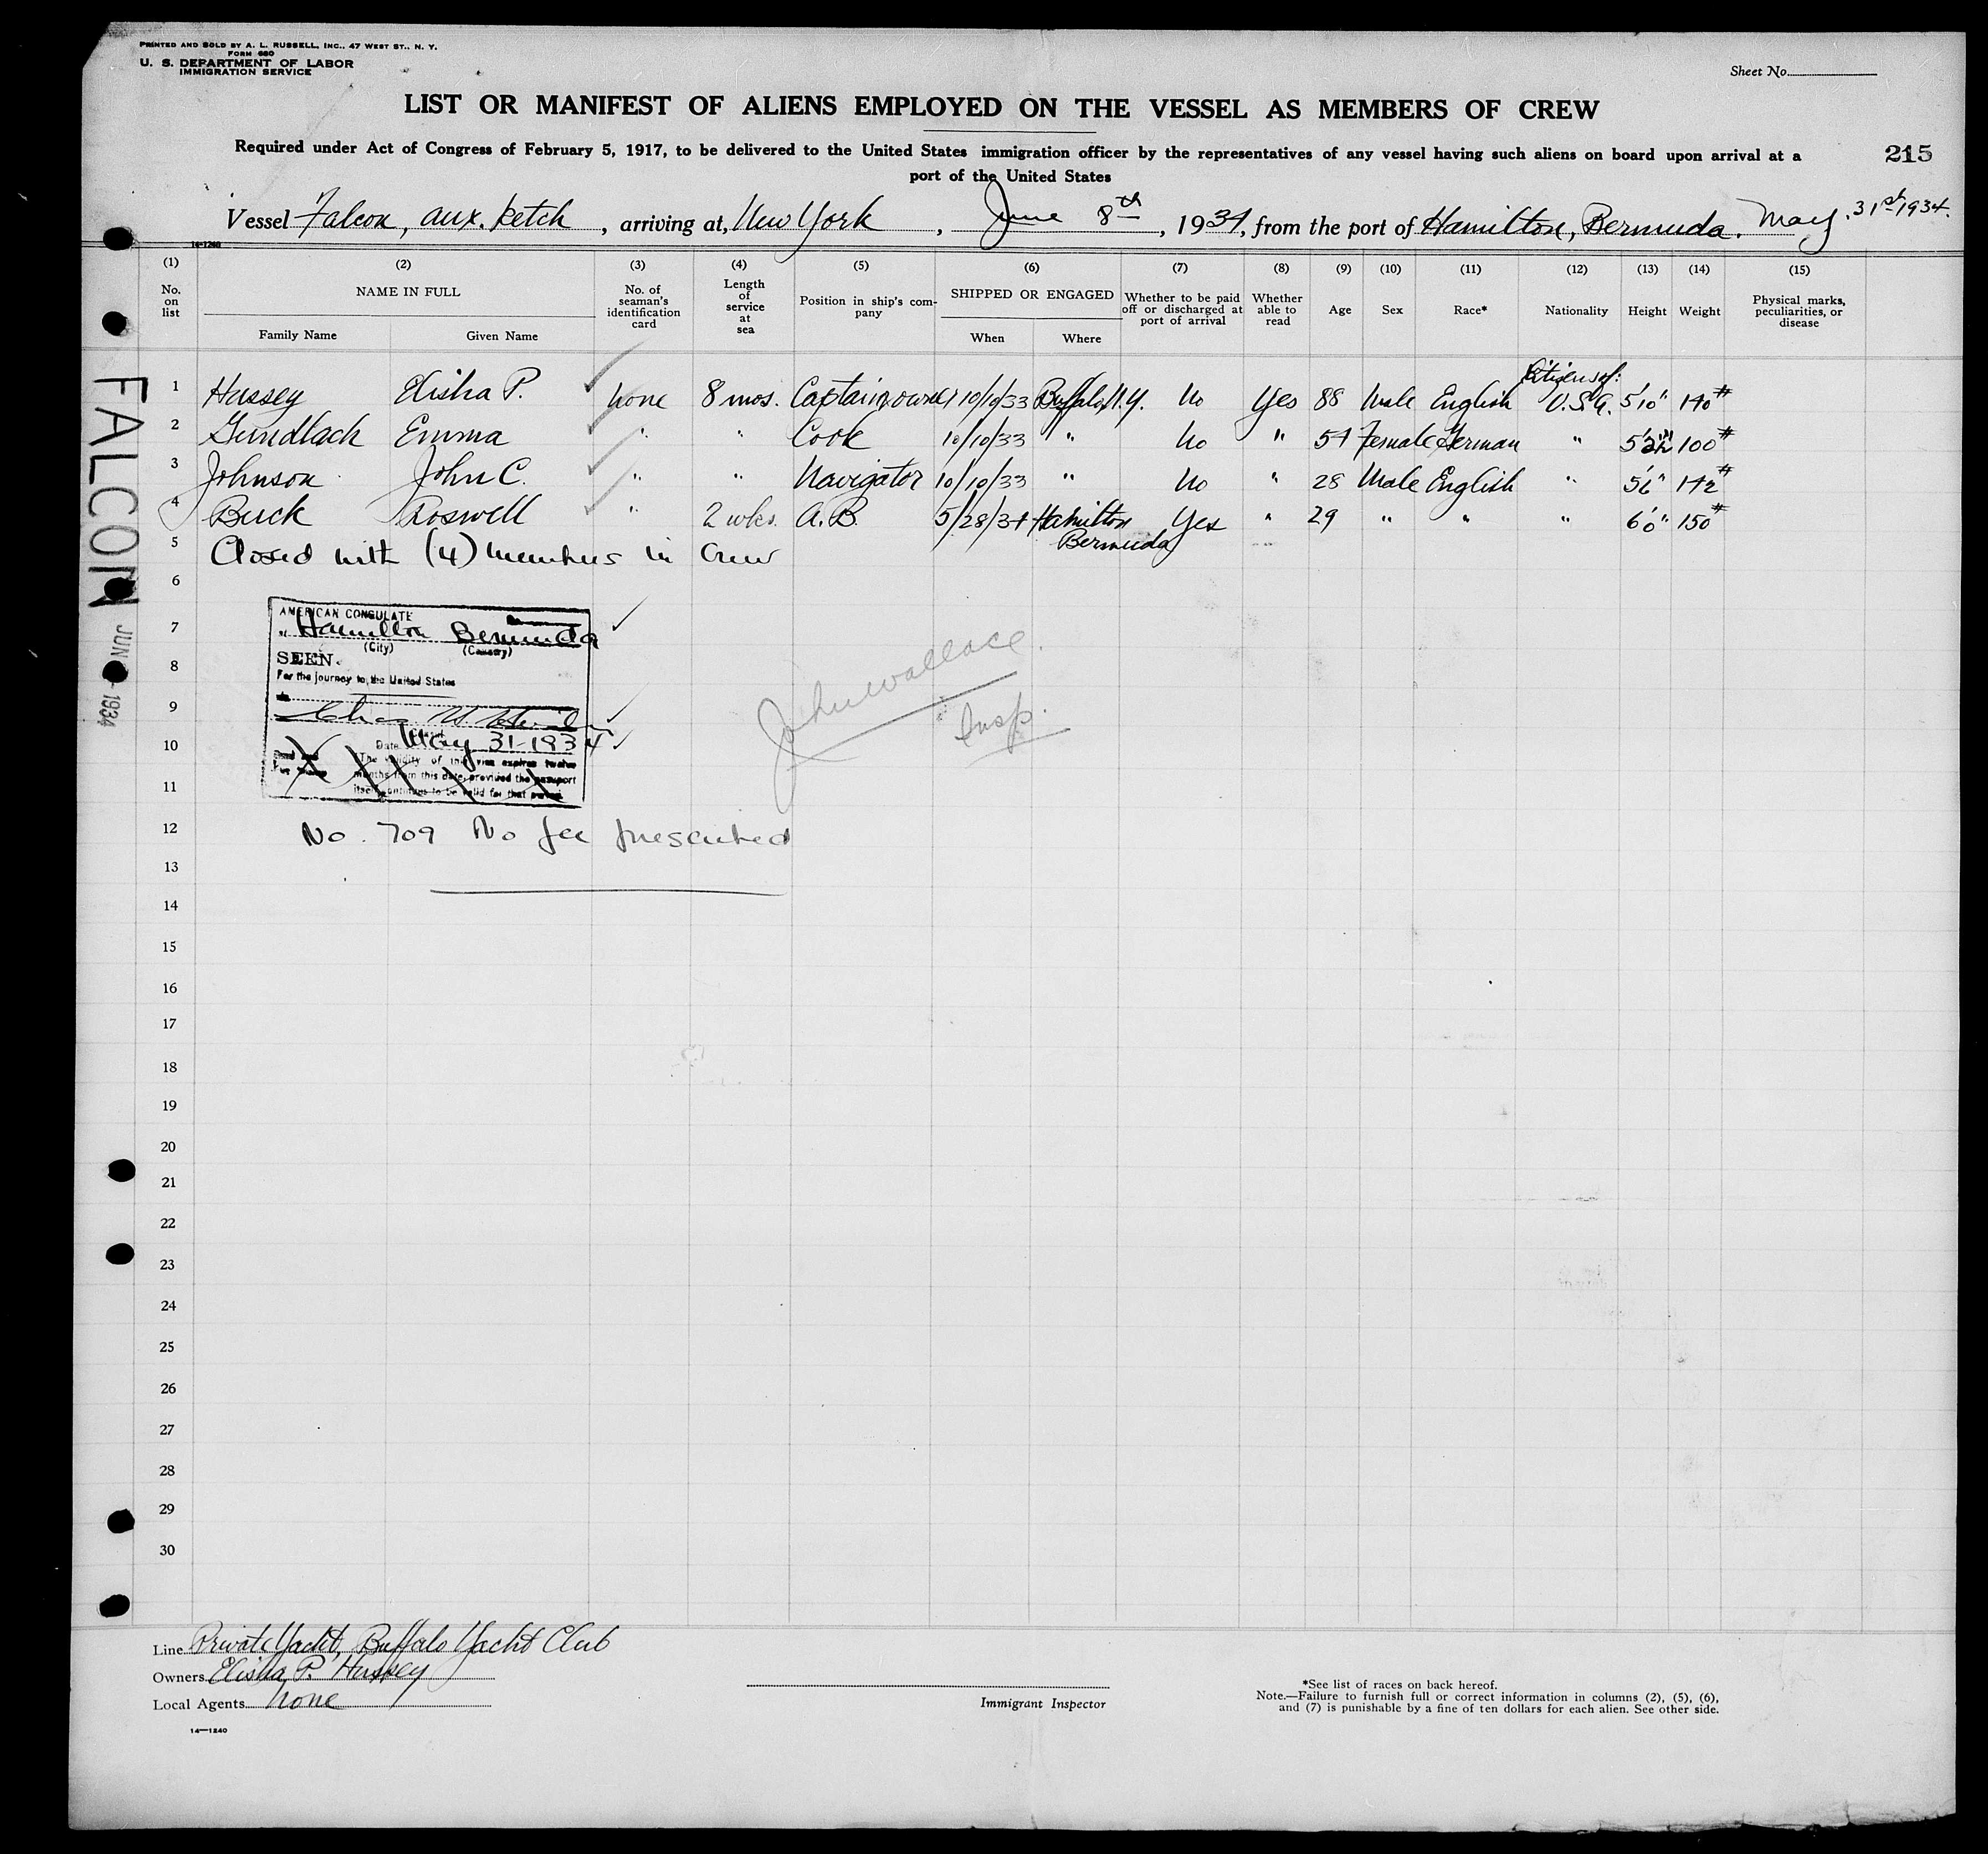 PRINTED AND SOLD BY A. L. RUSSELL, INC., 47 WEST ST., N. Y.
FORM 680
U. S. DEPARTMENT OF LABOR
IMMIGRATION SERVICE
Sheet No.
LIST OR MANIFEST OF ALIENS EMPLOYED ON THE VESSEL AS MEMBERS OF CREW
Required under Act of Congress of February 5, 1917, to be delivered to the United States immigration officer by the representatives of any vessel having such aliens on board upon arrival at a
port of the United States
215
Vessel Falcon, aux. ketch, arriving at, New York, June 8th, 1934, from the port of Hamilton, Bermuda. May. 31st 1934.
14-1240
(1) (2) (3) (4) (5) (6) (7) (8) (9) (10) (11) (12) (13) (14) (15)
No. on list NAME IN FULL Family Name Given Name No. of seaman's identification card Length of service at sea Position in ship's company SHIPPED OR ENGAGED When Where Whether to be paid off or discharged at port of arrival Whether able to read Age Sex Race* Nationality Height Weight Physical marks, peculiarities, or disease
Citizens of:
1 Hussey Elisha P. None 8 mos. Captain, owner 10/10/33 Buffalo, N.Y. No Yes 88 Male English U.S.A. 5'10" 140#
2 Gundlach Emma " " Cook 10/10/33 " No " 54 Female German " 5'2½" 100#
3 Johnson John C. " " Navigator 10/10/33 " No " 28 Male English " 5'6" 142#
4 Buck Roswell " 2 wks. A.B. 5/28/34 Hamilton Bermuda Yes " 29 " " " 6'0" 150#
5 Closed with (4) members in Crew
6
7
8
9
10
11
12
13
14
15
16
17
18
19
20
21
22
23
24
25
26
27
28
29
30
FALCON
JUN 1934
AMERICAN CONSULATE
Hamilton Bermuda
(City) (Country)
SEEN.
For the journey to the United States
Date May 31-1934
The validity of this visa expires twelve
months from this date, provided the passport
itself continues to be valid for that period.
No. 709 No fee prescribed
John Wallace.
Insp.
Line Private Yacht, Buffalo Yacht Club
Owners Elisha P. Hussey
Local Agents None
14—1240
Immigrant Inspector
*See list of races on back hereof.
Note.—Failure to furnish full or correct information in columns (2), (5), (6),
and (7) is punishable by a fine of ten dollars for each alien. See other side.